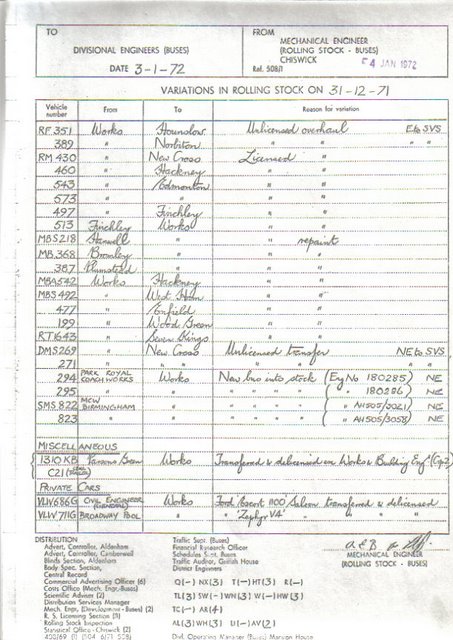 TO
FROM
DIVISIONAL ENGINEERS (BUSES)
MECHANICAL ENGINEER
(ROLLING STOCK - BUSES)
CHISWICK
DATE 3-1-72
Ref. 508/1
4 JAN 1972
VARIATIONS IN ROLLING STOCK ON 31-12-71
Vehicle number From To Reason for variation
RF 351 Works Hounslow Unlicensed overhaul E to SVS
389 " Norbiton " " " "
RM 430 " New Cross Licensed "
460 " Hackney " "
543 " Edmonton " "
573 " " " "
497 " Finchley " "
513 Finchley Works " "
MBS 218 Hanwell " " repaint
MB 368 Bromley " " "
387 Plumstead " " "
MBA 542 Works Hackney " "
MBS 492 " West Ham " "
477 " Enfield " "
199 " Wood Green " "
RT 1643 " Seven Kings " "
DMS 269 " New Cross Unlicensed transfer NE to SVS
271 " " " " " "
294 PARK ROYAL COACHWORKS Works New bus into stock (Eng No 180285) NE
295 " " " " " " ( 180286) NE
SMS 822 MCW BIRMINGHAM " " " " " ( " AH505/3021) NE
823 " " " " " " ( " AH505/3058) NE
MISCELLANEOUS
1310 KB Parsons Green Works Transferred & delicensed ex Works & Building Engr (Gp2)
C21
PRIVATE CARS
VLW 686G CIVIL ENGINEER (GENERAL) Works Ford Escort 1100 Saloon transferred & delicensed
VLW 711G BROADWAY POOL " " 'Zephyr V4' " " "
DISTRIBUTION
Advert. Controller, Aldenham
Advert. Controller, Camberwell
Blinds Section, Aldenham
Body Spec. Section,
Central Record
Commercial Advertising Officer (6)
Costs Office (Mech. Engr.-Buses)
Scientific Adviser (2)
Distribution Services Manager
Mech. Engr. (Development - Buses) (2)
R. S. Licensing Section (1)
Rolling Stock Inspection
Statistical Office - Chiswick (2)
Traffic Supt. (Buses)
Financial Research Officer
Schedules Supt. Buses
Traffic Auditor, Griffith House
District Engineers
Q(-) NX(3) T(-) HT(3) R(-)
TL(3) SW(-) WN(3) W(-) HW(3)
TC(-) AR(4)
AL(3) HD(1) U(-) AV(2)
Divl. Operating Manager (Buses) Mansion House
MECHANICAL ENGINEER
(ROLLING STOCK - BUSES)